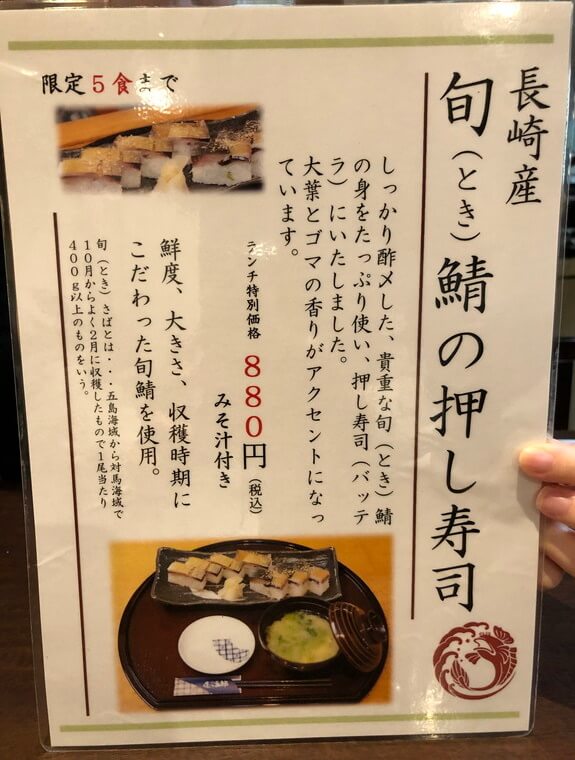 長崎産
旬（とき）鯖の押し寿司
しっかり酢〆した、貴重な旬（とき）鯖
の身をたっぷり使い、押し寿司（バッテ
ラ）にいたしました。
大葉とゴマの香りがアクセントになっ
ています。
ランチ特別価格
８８０円（税込）
みそ汁付き
限定５食まで
鮮度、大きさ、収穫時期に
こだわった旬鯖を使用。
旬（とき）さばとは・・・五島海域から対馬海域で
１０月からよく２月に収穫したもので１尾当たり
４００ｇ以上のものをいう。